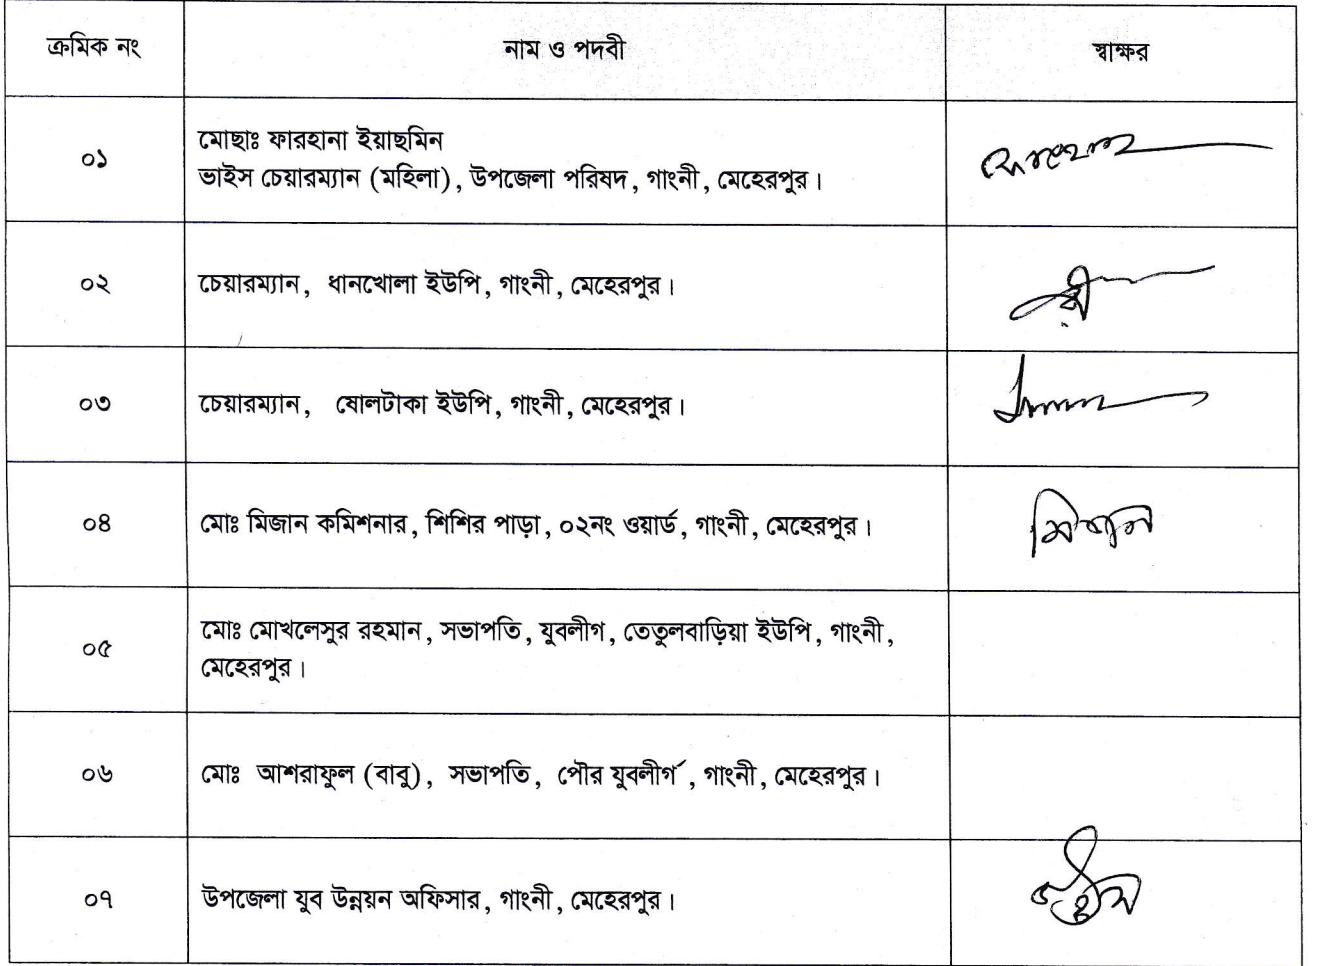 ক্রমিক নং নাম ও পদবী স্বাক্ষর
০১ মোছাঃ ফারহানা ইয়াছমিন
ভাইস চেয়ারম্যান (মহিলা), উপজেলা পরিষদ, গাংনী, মেহেরপুর।
০২ চেয়ারম্যান, ধানখোলা ইউপি, গাংনী, মেহেরপুর।
০৩ চেয়ারম্যান, ষোলটাকা ইউপি, গাংনী, মেহেরপুর।
০৪ মোঃ মিজান কমিশনার, শিশির পাড়া, ০২নং ওয়ার্ড, গাংনী, মেহেরপুর। মিজান
০৫ মোঃ মোখলেসুর রহমান, সভাপতি, যুবলীগ, তেতুলবাড়িয়া ইউপি, গাংনী,
মেহেরপুর।
০৬ মোঃ আশরাফুল (বাবু), সভাপতি, পৌর যুবলীর্গ, গাংনী, মেহেরপুর।
০৭ উপজেলা যুব উন্নয়ন অফিসার, গাংনী, মেহেরপুর।